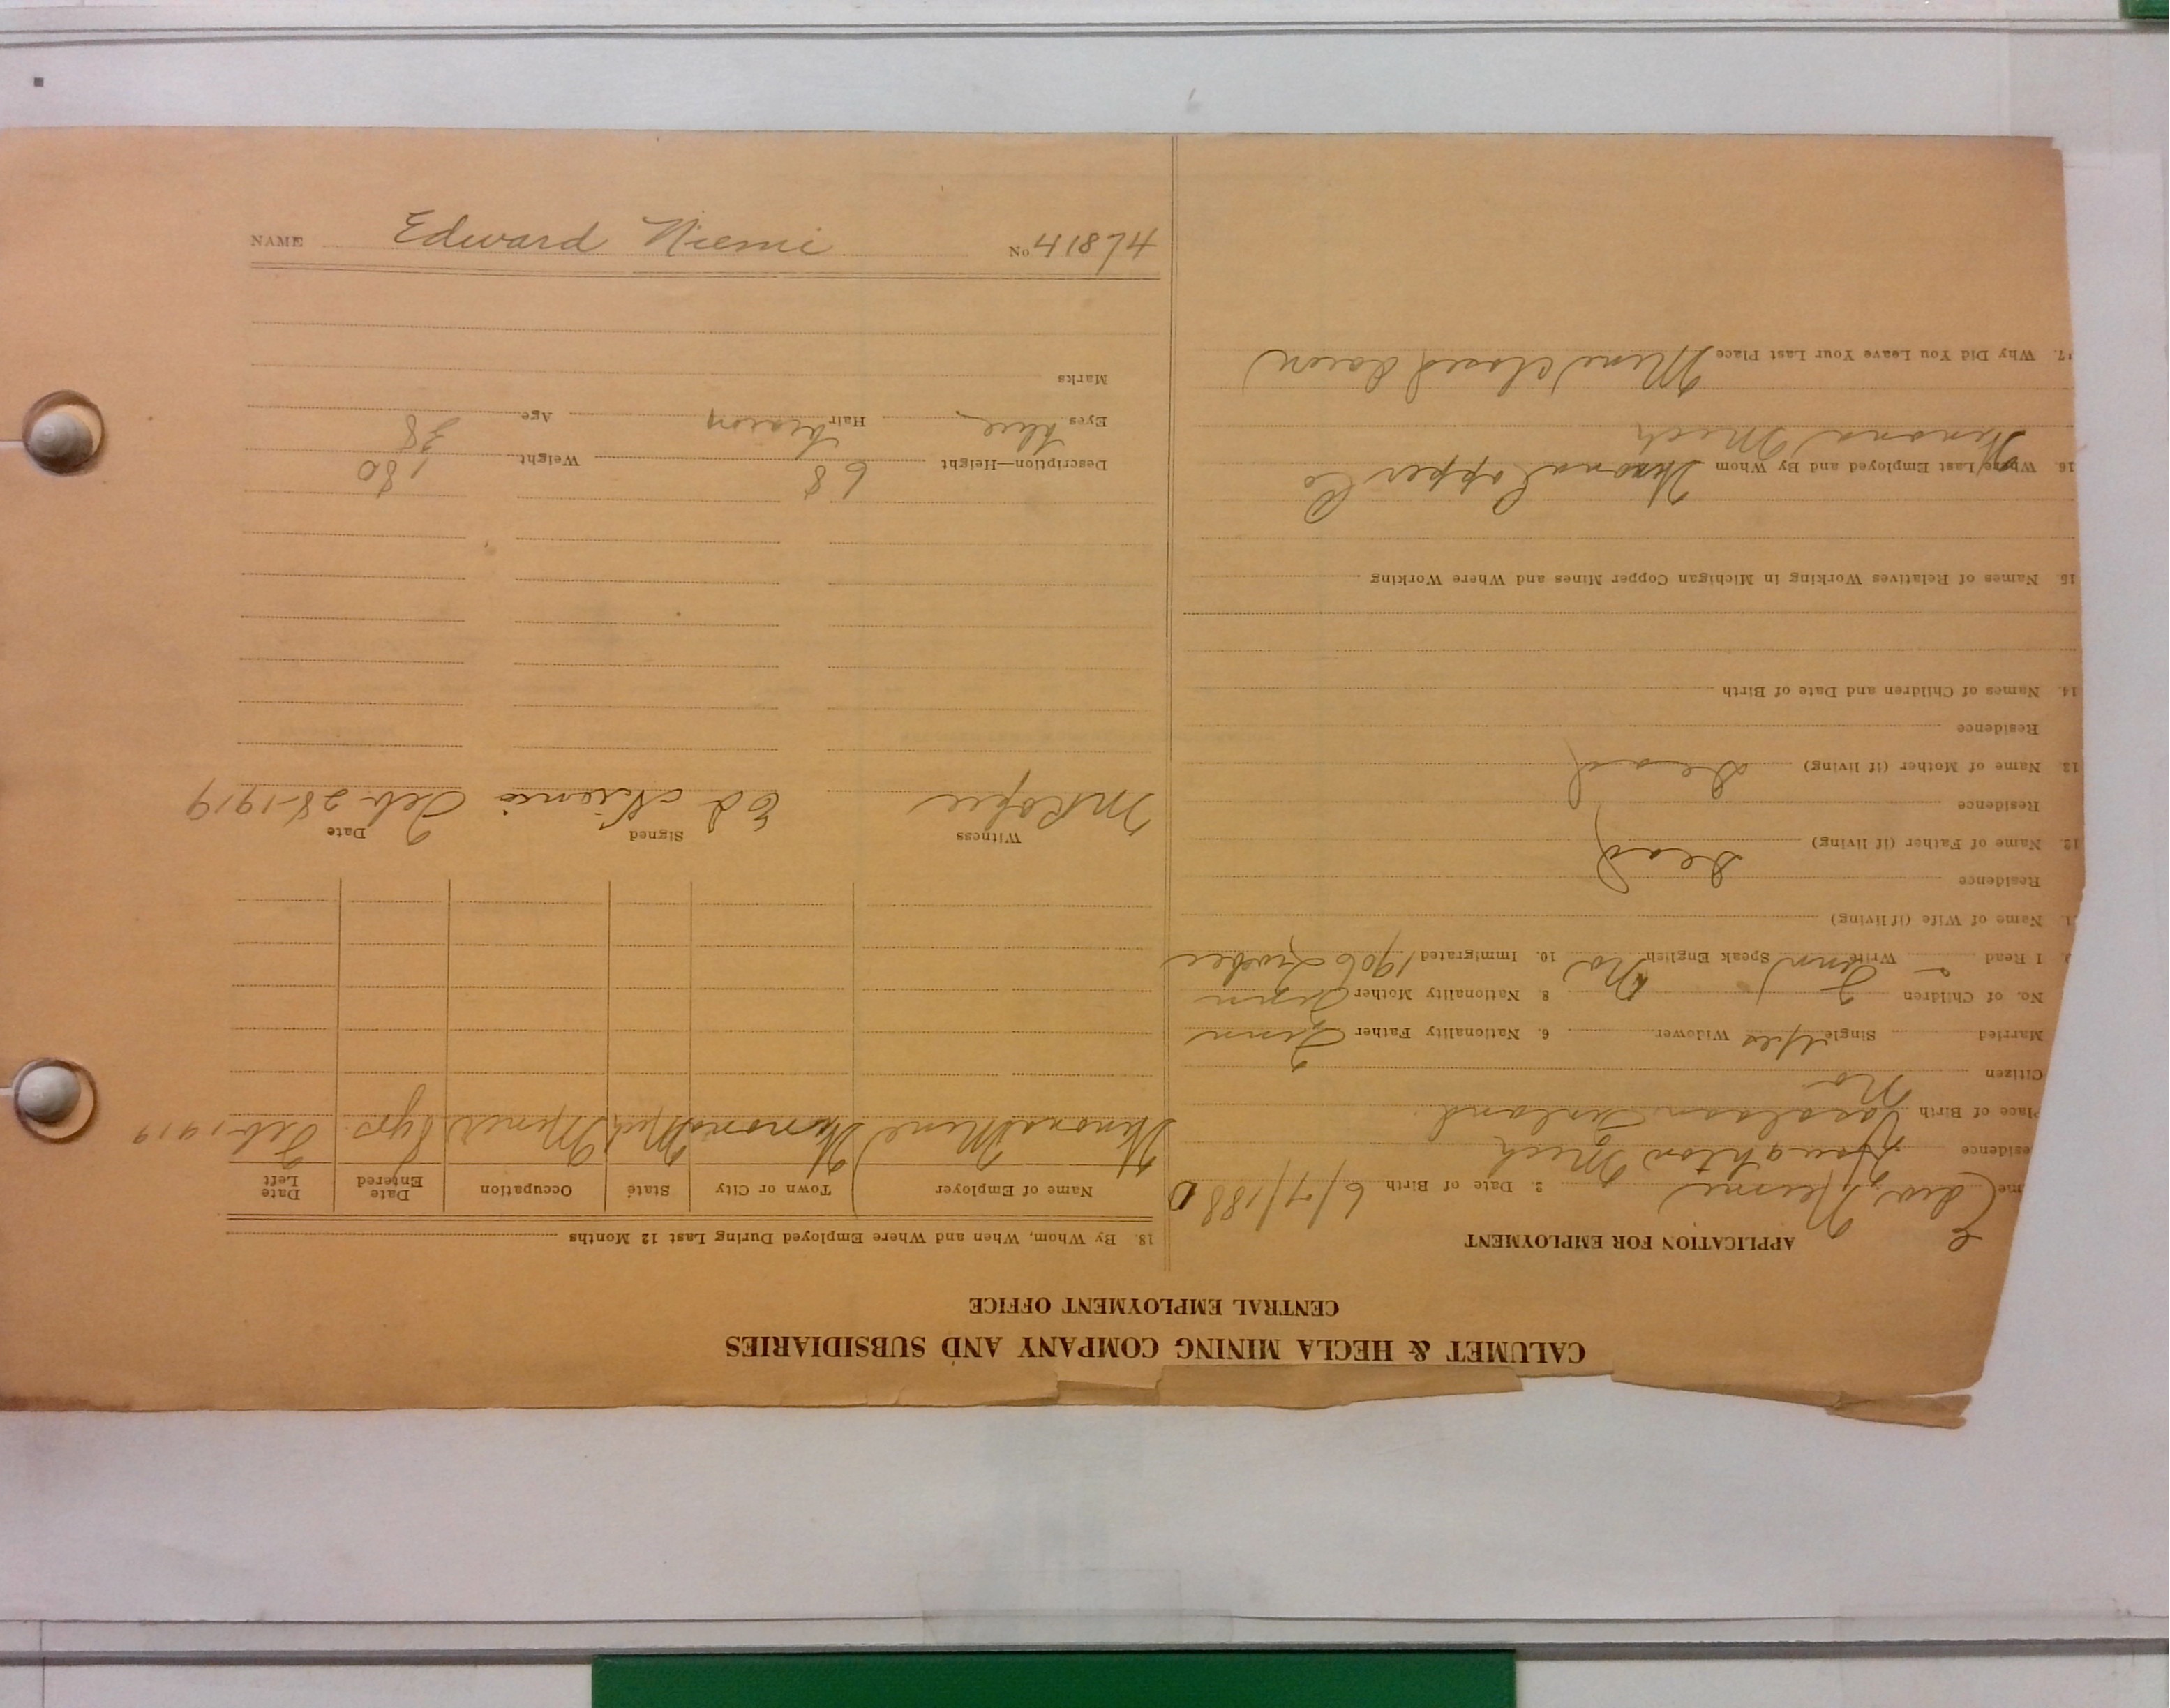 CALUMET & HECLA MINING COMPANY AND SUBSIDIARIES
CENTRAL EMPLOYMENT OFFICE
APPLICATION FOR EMPLOYMENT
me Edw Niemi 2. Date of Birth 6/7/1880
esidence Houghton Mich
Place of Birth Finland
Citizen No
Married Single Yes Widower 6. Nationality Father Finn
No. of Children 8 Nationality Mother Finn
I Read Write Finn Speak English No 10. Immigrated 1906 Quebec
1. Name of Wife (if living)
Residence
12. Name of Father (if living) Dead
Residence
13. Name of Mother (if living) Dead
Residence
14. Names of Children and Date of Birth
15. Names of Relatives Working in Michigan Copper Mines and Where Working
16. Where Last Employed and By Whom Winona Copper Co
Winona Mich
17. Why Did You Leave Your Last Place Mine closed down
18. By Whom, When and Where Employed During Last 12 Months
Name of Employer Town or City State Occupation Date Entered Date Left
Winona Mine Winona Mich Miner 8 yrs. Feb. 1919
Witness Signed Date
Ed Niemi Feb. 28-1919
Description—Height 68 Weight 180
Eyes blue Hair brown Age 38
Marks
NAME Edward Niemi No 41874